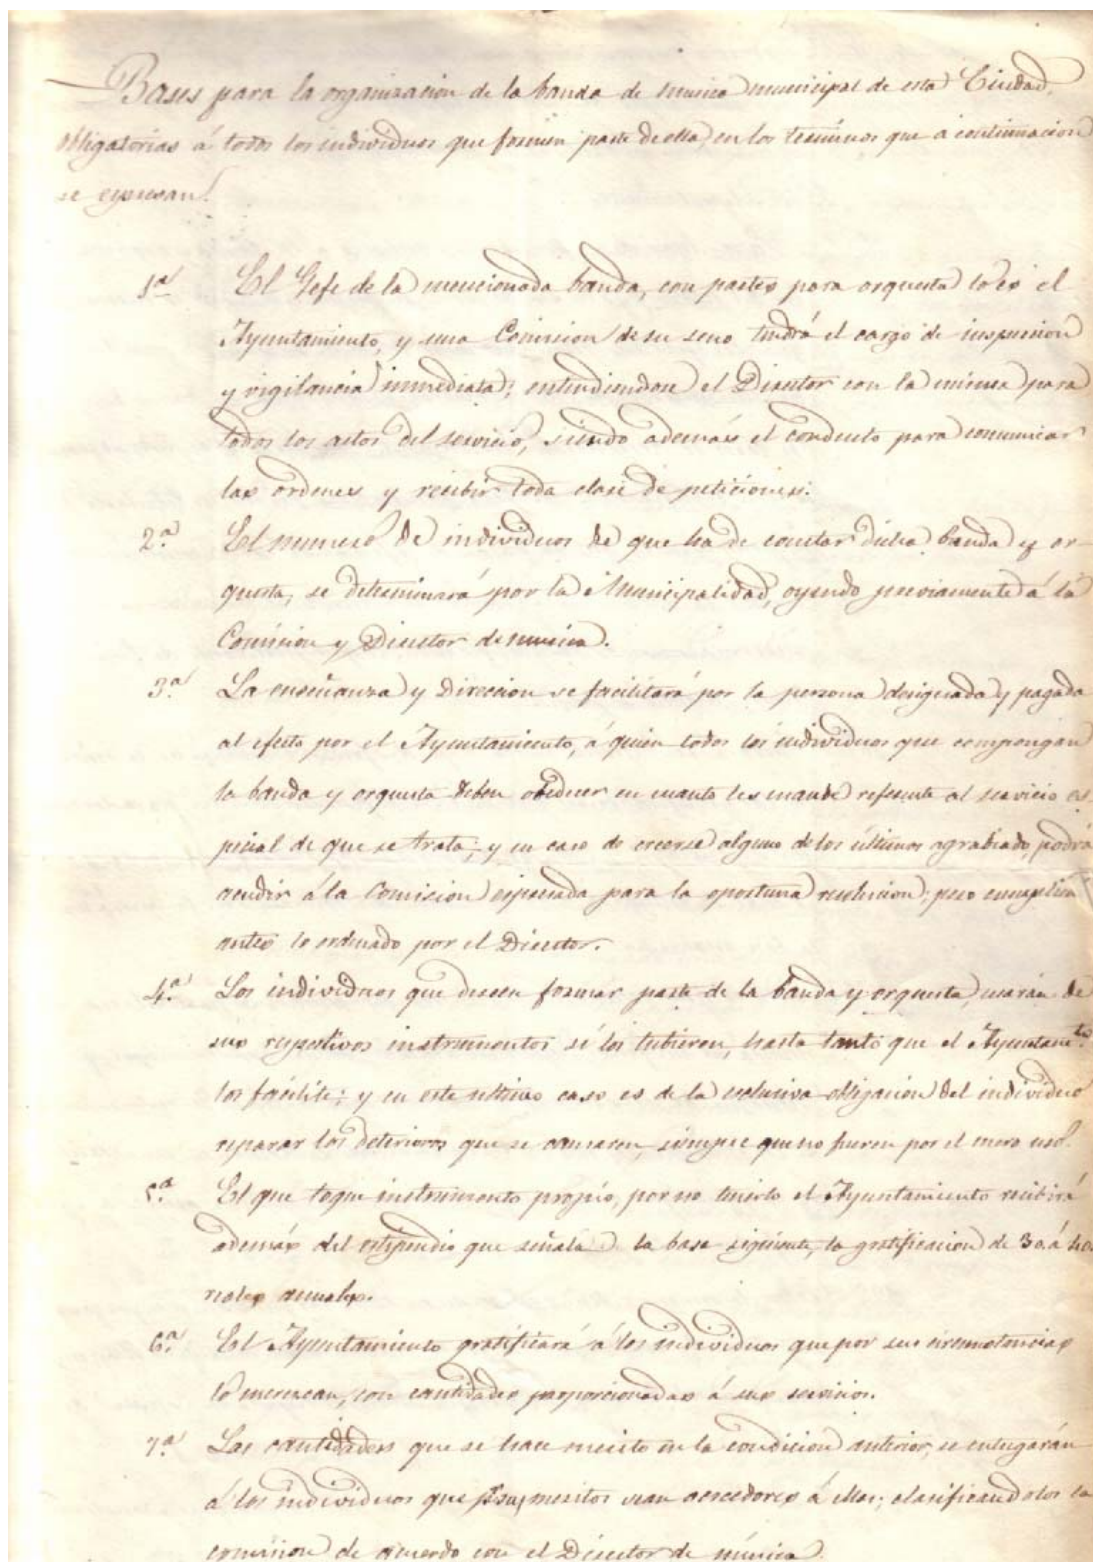 Bases para la organizacion de la banda de musica municipal de esta Ciudad,
obligatorias á todos los individuos que formen parte de ella, en los terminos que á continuacion
se expresan.
1ª El Gefe de la mencionada banda, con partes para orquesta lo es el
Ayuntamiento, y una Comision de su seno tendrá el cargo de inspeccion
y vigilancia inmediata; entendiendose el Director con la misma para
todos los actos del servicio, siendo además el conducto para comunicar
las ordenes y recibir toda clase de peticiones.
2ª El numero de individuos de que ha de constar dicha banda y or-
questa, se determinará por la Municipalidad, oyendo previamente á la
Comision y Director de musica.
3ª La enseñanza y direccion se facilitará por la persona designada y pagada
al efecto por el Ayuntamiento, á quien todos los individuos que compongan
la banda y orquesta deben obedecer en cuanto les mande referente al servicio es-
pecial de que se trata; y en caso de creerse alguno de los últimos agrabiado, podrá
acudir á la Comision espresada para la oportuna resolucion; pero cumplira
antes lo ordenado por el Director.
4ª Los individuos que deseen formar parte de la banda y orquesta, usarán de
sus respectivos instrumentos si los tubieren, hasta tanto que el Ayuntamto
los facilite; y en este ultimo caso es de la esclusiva obligacion del individuo
reparar los deterioros que se causaren, siempre que no fueren por el mero uso.
5ª El que toque instrumento propio, por no tenerlo el Ayuntamiento recibirá
además del estipendio que señala la base siguiente, la gratificacion de 30 á 40
reales anuales.
6ª El Ayuntamiento gratificará á los individuos que por sus circunstancias
lo merezcan, con cantidades proporcionadas á sus servicios.
7ª Las cantidades que se hace merito en la condicion anterior, se entregarán
á los individuos que por sus meritos sean acreedores á ellas; clasificandolos la
comision de acuerdo con el Director de música.